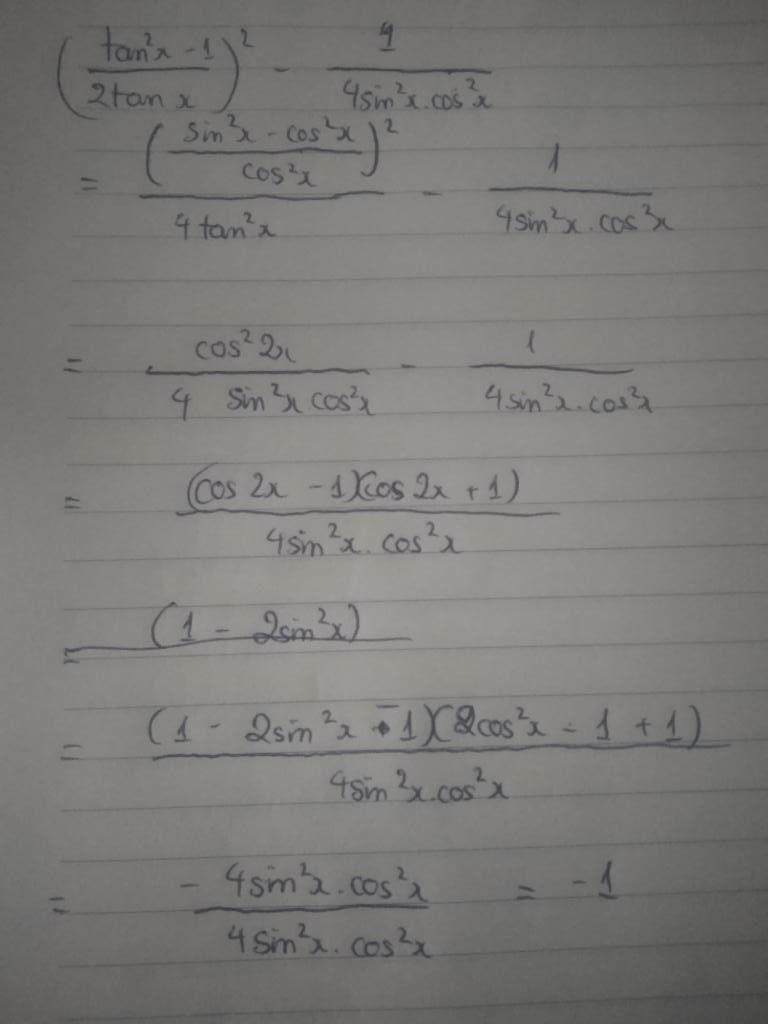 (tan²x - 1 / 2tan x)² - 1 / 4sin²x.cos²x
= (sin²x - cos²x / cos²x)² / 4 tan²x - 1 / 4sin²x.cos²x
= cos² 2x / 4 sin²x cos²x - 1 / 4sin²x.cos²x
= (cos 2x - 1)(cos 2x + 1) / 4sin²x.cos²x
= (1 - 2sin²x)
= (1 - 2sin²x - 1)(2cos²x - 1 + 1) / 4sin²x.cos²x
= - 4sin²x.cos²x / 4sin²x.cos²x = -1